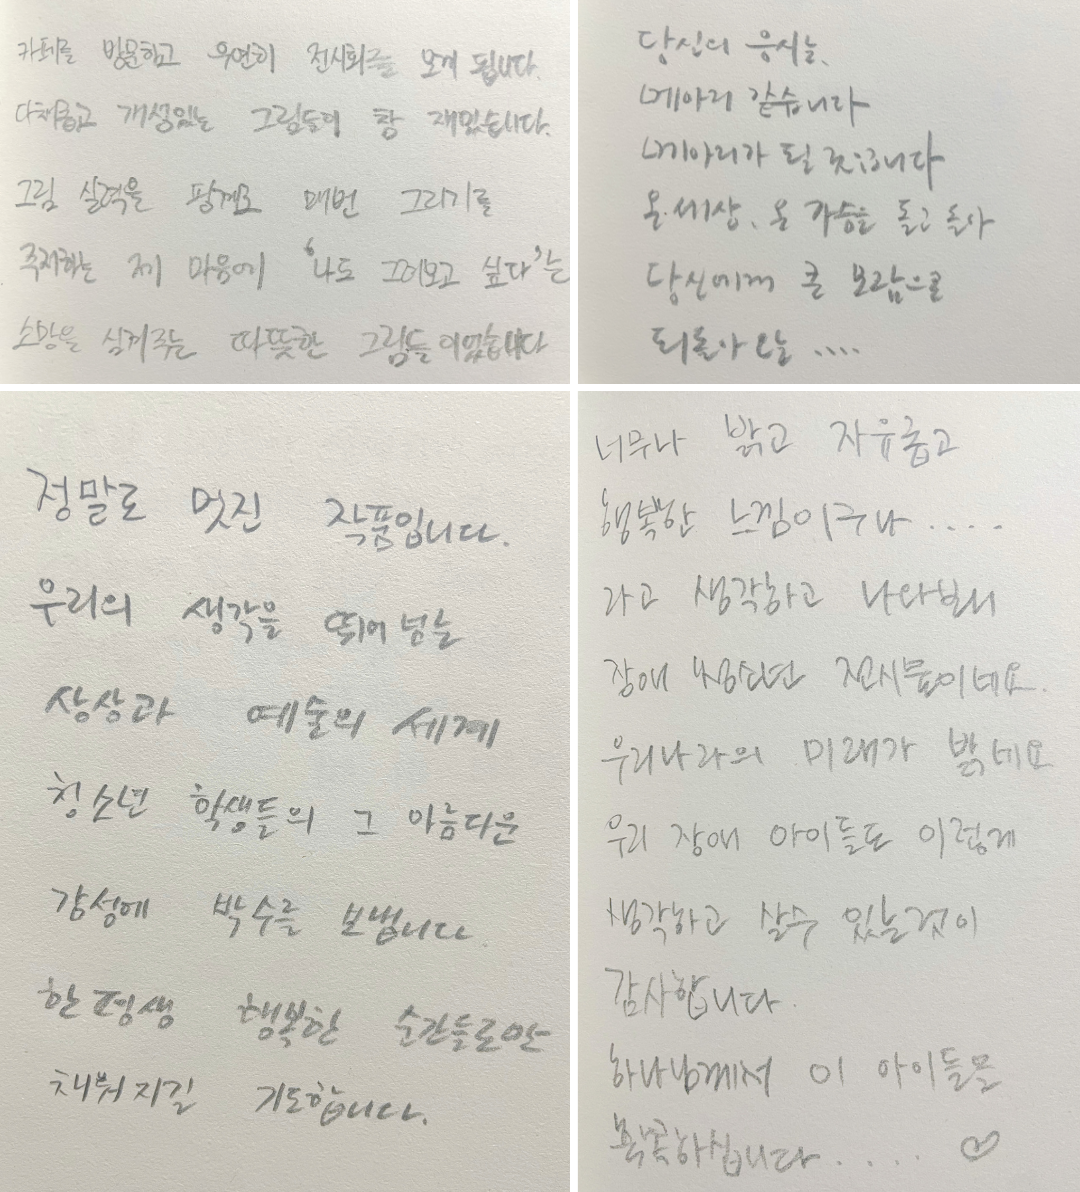 카페를 방문하고 우연히 전시회를 보게 됩니다.
다채롭고 개성있는 그림들이 참 재밌습니다.
그림 실력을 핑계로 매번 그리기를
주저하는 제 마음에 '나도 그려보고 싶다'는
소망을 심겨주는 따뜻한 그림들이었습니다
당신의 응시는,
메아리 같습니다
메아리가 될 것입니다
온 세상, 온 가슴을 돌고 돌아
당신에게 큰 보람으로
되돌아 오는 ....
정말로 멋진 작품입니다.
우리의 생각을 뛰어 넘는
상상과 예술의 세계
청소년 학생들의 그 아름다운
감성에 박수를 보냅니다
한평생 행복한 순간들로만
채워지길 기도합니다.
너무나 밝고 자유롭고
행복한 느낌이구나 ....
라고 생각하고 나타보니
장애 청소년 전시품이네요.
우리나라의 미래가 밝네요
우리 장애 아이들도 이렇게
생각하고 살수 있는것이
감사합니다.
하나님께서 이 아이들을
축복하십니다 .... ♡